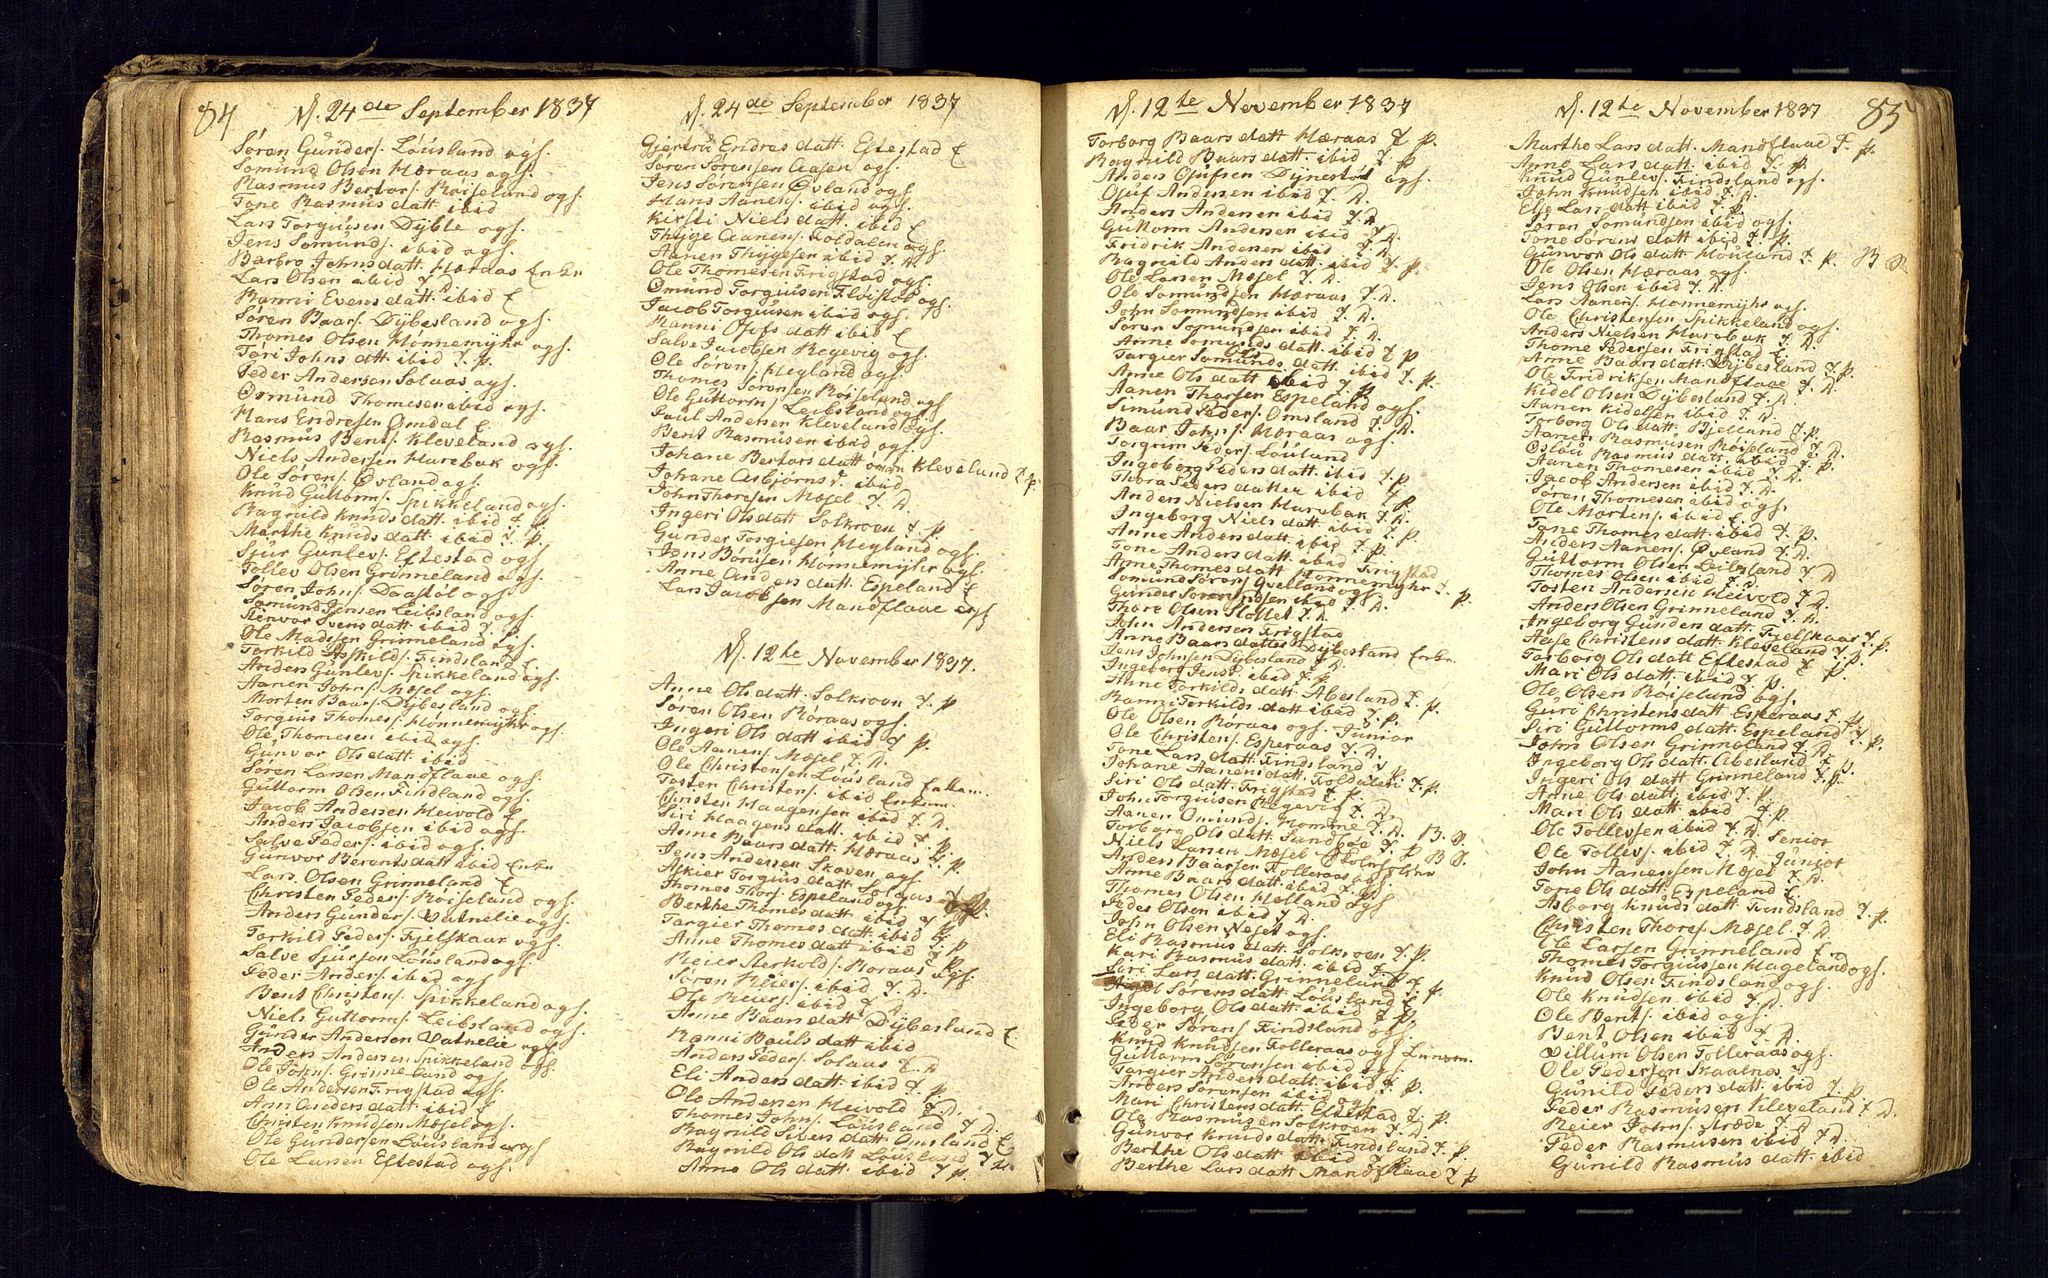 84
N. 24de September 1837
Søren Günders. Löüsland ogs.
Somünd Olsen Hæraas ogs.
Rasmus Bertors. Røiseland ogs.
Tone Rasmus datt ibid
Lars Torgiüsen Dÿble ogs.
Jens Somünds. ibid ogs.
Barbro Johns datt. Hæraas Enke
Lars Olsen ibid
Ranni Evens datt. ibid E
Søren Baars. Dÿbesland ogs.
Thomes Olsen Hønnemÿhr ogs.
Tøri Johns dtt. ibid Z. p.
Peder Andersen Solaas ogs.
Osmünd Thomesen ibid ogs.
Hans Endresen Omdal E
Rasmüs Bents. Kleveland ogs.
Niels Andersen Harebak ogs.
Ole Sørens. Øvland ogs.
Knüd Güttorms. Spikkeland ogs.
Ragnild Knüds datt. ibid Z. p.
Marthe Knüds datt ibid Z. p.
Sjür Günlevs. Eftestad ogs.
Tollev Olsen Grinneland ogs.
Søren Johns. Daastøl ogs.
Somünd Jensen Leibsland ogs.
Stenvor Svens datt. ibid Z. p.
Ole Madssen Grinneland ogs.
Torkild Askilds. Findsland E.
Anders Günlevs. Spikkeland ogs.
Aanen Johns. Møsel ogs.
Morten Baars. Dÿbesland ogs.
Torgiüs Thomes. Hønnemÿhr ogs.
Ole Thomesen ibid ogs.
Günvor Ols datt ibid
Søren Larsen Mandflaae ogs.
Güttorm Olsen Findland ogs.
Jacob Andersen Heivold E
Anders Jacobsen ibid ogs.
Salve Peders. ibid ogs.
Günvor Berents datt ibid Enke
Lars Olsen Grinneland E
Christen Peders. Røiseland ogs.
Anders Günders. Vatnelie ogs.
Torkild Peders. Fjelskaar ogs.
Salve Sjürsen Löüsland ogs.
Peder Anders. ibid og
Bent Christens. Spikkeland ogs.
Niels Güttorms. Leibsland ogs.
Günder Andersen Vatnelie ogs.
Anders Andersen Spikkeland ogs.
Ole Johns. Grinneland og
Ole Andersen Frigstad ogs.
Ann Anders datt. ibid E
Christen Knüdsen Møsel ogs.
Ole Gündersen Löüsland ogs
Ole Larsen Eftestad ogs.
N. 24de September 1837
Gjertrü Endres datt. Eftestad E
Søren Sørensen Aasen ogs.
Jens Sørensen Øvland ogs.
Hans Aanens. ibid ogs.
Kirsti Niels datt. ibid E
Thÿge Aanens. Foldalen ogs.
Aanen Thÿgesen ibid Z. D.
Ole Thomesen Frigstad ogs.
Omünd Torgiüsen Fløistøl ogs.
Jacob Torgiüsen ibid ogs.
Hanni Olufs datt ibid E
Salve Jacobsen Regevig ogs.
Ole Sørens. Hegland ogs.
Thomes Sørensen Røiseland ogs
Ole Güttorms. Leibsland ogs.
Paul Andersen Kleveland ogs.
Bent Rasmüsen ibid ogs.
Johane Bertors datt øvran Kleveland Z p.
Johane Asbjørns d. ibid
John Thorsen Møsel Z. D.
Ingeri Ols datt Solkroen Z p
Gunder Torgiesen Hegland ogs.
Jens Børüfsen Hønnemÿhr ogs.
Anne Anders datt. Espeland E
Lars Jacobsen Mandflaae ogs
N. 12te November 1837.
Anne Ols datt. Solkroen Z. p
Søren Olsen Røraas ogs.
Ingeri Ols datt ibid Z p.
Ole Aanens. Møsel Z. D.
Ole Christensen Löüsland Enkem.
Tosten Christens. ibid Enkem.
Christen Haagensen ibid Z. D.
Siri Haagens datt. ibid Z. p.
Anne Baars datt. Hæraas Z. p
Jens Andersen Skoven ogs.
Askier Torgiüs datt Solaas Z p.
Thomes Thors. Espeland ogs.
Berthe Thomes datt ibid Z p.
Targier Thomes datt. ibid Z. p
Anne Thomes datt ibid Z p
Reier Nerkolds. Roraas ogs.
Søren Reiers. ibid Z. D.
Ole Reiers. ibid Z. D
Anne Baars datt. Dÿbesland E
Ranni Baüls datt ibid
Anders Peders. Solaas Z. D
Eli Anders datt. ibid Z. p
Ole Andersen Heivold Z. D.
Thomes Johns. Löüsland Z. D.
Ragnild Sivers datt Omsland E
Ragnild Ols datt Löüsland Z
Anne Ols datt. ibid Z p.
N. 12te November 1837
Torborg Baars datt Hæraas Z p.
Ragnild Baars datt. ibid Z. p
Anders Olüfsen Dÿnestøl ogs.
Olüf Andersen ibid Z. D.
Anders Andersen ibid Z. D.
Güttorm Andersen ibid Z. D.
Fridrik Andersen ibid Z. D.
Ragnild Anders datt. ibid Z. p.
Ole Larsen Møsel Z. D.
Ole Somündsen Hæraas Z. D.
John Somündsen ibid Z. D.
Søren Somündsen ibid Z. D.
Anne Somünds datt. ibid Z p
Targier Somünds datt. ibid Z. p.
Anne Ols datt ibid Z p
Aanen Thorsen Espeland ogs.
Simünd Peders. Omsland Z D.
Baar Johns. Hæraas ogs
Torgrim Peders. Löüland
Ingeborg Peders datt. ibid Z. p.
Thora Peders datter ibid Z p
Anders Nielsen Harebak Z. D.
Ingeborg Niels datt ibid Z. p.
Anne Anders datt. ibid Z. p.
Tone Anders datt. ibid
Anne Thomes datt Frigstad
Somünd Sørens. Qvelland ogs
Gunder Somündsen ibid Z. D.
Thore Olsen Slottet Z. D.
John Andersen Frigstad
Anne Baars datter Dÿbesland Enke.
Jens Johnsen Dÿbesland Z D.
Ingeborg Jensd. ibid Z. p.
Anne Torkilds datt. Abesland Z. p.
Ranni Torkilds datt ibid Z. p.
Ole Olsen Røraas ogs. Junior
Ole Christens. Esperaas Z. D.
Tone Lars datt. Findsland Z p.
Johane Aanens datt. Foldalen Z p.
Siri Ols datt. Frigstad Z. p.
John Torgiüsen Regevig
Aanen Omünds. Homme Z. D. B. S.
Torborg Ols datt. Sundsøe Z. p. B S.
Niels Larsen Møsel
Anders Baarsen Folleraas ogs
Anne Baars datt. ibid Z. p.
Thomes Olsen Holland ogs
Peder Olsen ibid Z. D.
John Olsen Neset ogs.
Eli Rasmüs datt. Solkroen Z. p.
Kari Rasmüs datt. ibid Z p
Siri Lars datt. Grinneland Z p.
Sørens datt. Löüsland E
Ingeborg Ols datt. ibid Z p.
Peder Sørens. Findsland ogs.
Knüd Knüdsen Folleraas ogs Lensm.
Güttorm Sørensen ibid ogs.
Targier Anders datt. ibid Z. p.
Anders Sørensen ibid ogs.
Mari Christens datt. Eftestad Z. p.
Ole Rasmüsen Solkroen Z. D
Günvor Knüds datt. Findsland Z. p.
Berthe Ols datt. ibid Z p
Berthe Lars datt Mandflaae Z p
85
N. 12te November 1837
Marthe Lars datt. Mandflaae Z. p.
Anne Lars datt. ibid Z. p.
Knüd Günlevs. Findsland ogs.
John Knüdsen ibid Z. D.
Else Lars datt ibid Z. p
Søren Somündsen ibid ogs.
Tone Sørens datt ibid Z. p.
Günvor Ols datt Höüland Z p. B S.
Ole Olsen Hæraas ogs.
Jens Olsen ibid Z. D.
Lars Aanens. Hønnemÿhr ogs.
Ole Christensen Spikkeland ogs.
Anders Nielsen Harebak Z. D
Thome Pedersen Frigstad E.
Anne Baars datt. Dÿbesland Z p.
Ole Fridriksen Mandflaae Z. D.
Kidel Olsen Dÿbesland Z. D.
Aanen Kidelsen ibid Z. D.
Torborg Ols datt. Bjelland Z. p.
Aanen Rasmüsen Røiseland Z. D.
Oslöü Rasmüs datt ibid Z. p.
Aanen Thomesen ibid Z. D.
Jacob Andersen ibid Z. D.
Søren Thomesen ibid ogs.
Ole Mortens. ibid E
Tone Thomes datt ibid Z. p.
Anders Aanens. Øvland Z. D.
Güttorm Olsen Leibsland Z D
Thomes Olsen ibid Z. D.
Tosten Andersen Heivold Z. D.
Anders Olsen Grinneland Z. D.
Ingeborg Günders datt. Fjelskaar Z. p.
Aase Christens datt. Kleveland Z. p.
Torborg Ols datt Eftestad Z. p.
Mari Ols datt. ibid Z p.
Ole Olsen Røiseland ogs.
Güri Christens datt Esperaas Z. p.
Siri Güttorms datt. Espeland Z. p.
John Olsen Grinneland Z D.
Ingeborg Ols datt. Abesland Z p.
Ingeri Ols datt Grinneland Z. p.
Anne Ols datt. ibid Z p.
Mari Ols datt. ibid Z. p
Ole Tollevsen ibid Z. D. Senior
Ole Tollevs. ibid Z. D. Junior
John Aanensen Møsel Z. D.
Tone Ols datt. Espeland E
Asborg Knüds datt. Findsland Z. p.
Christen Thores. Møsel Z. D
Ole Larsen Grinneland E.
Thomes Torgiüssen Hageland ogs.
Knüd Olsen Findsland ogs.
Ole Knüdsen ibid Z. D.
Ole Bents. ibid ogs.
Bent Olsen ibid Z. D.
Villum Olsen Folleraas ogs.
Ole Pedersen Skaalnes Z
Günild Peders datt. ibid Z. p
Peder Rasmüsen Kleveland Z. D.
Reier Johns. Stræde Z D
Peder Rasmüsen ibid Z. D.
Günild Rasmüs datt. ibid